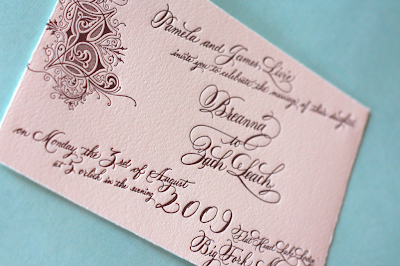 Pamela and James Livie
invite you to celebrate the marriage of their daughter
Breanna
to
Zach Leath
on Monday, the 3rd of August
at 3 o'clock in the evening
2009
Flat Head Lake Lodge
Big Fork